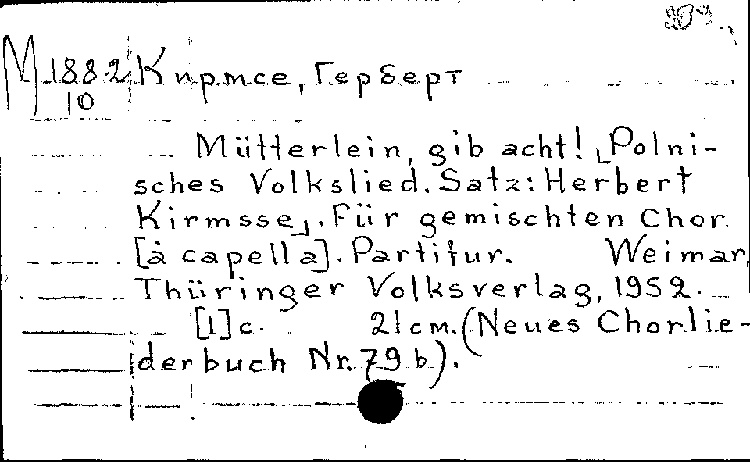 М 1882 Кирмсе, Герберт
10
Mütterlein, gib acht! [Polni-
sches Volkslied. Satz: Herbert
Kirmsse]. Für gemischten Chor
[à capella]. Partitur. Weimar,
Thüringer Volksverlag, 1952.
[1] c. 21 cm. (Neues Chorlie-
derbuch Nr. 79 b).